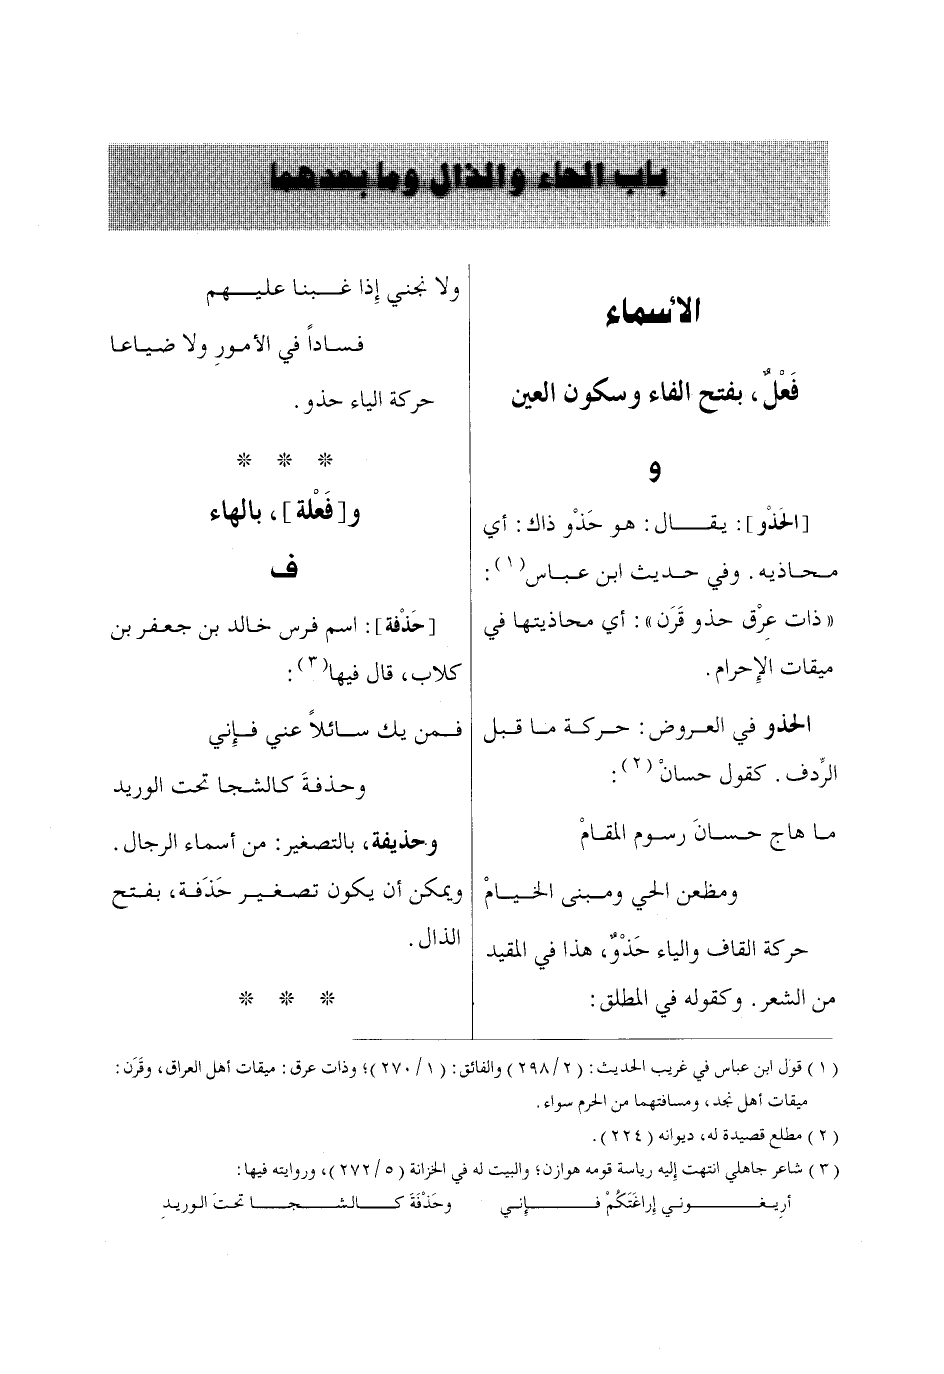 باب الحاء والذال وما بعدهما
الأسماء
فَعْلٌ، بفتح الفاء وسكون العين
و
[الحَذْو]: يقــــال: هو حَذْو ذاك: أي
محـاذيه. وفي حديث ابن عباس(١):
«ذات عِرْق حذو قَرَن»: أي محاذيتها في
ميقات الإحرام.
الحذو في العروض: حركة ما قبل
الرِّدف. كقول حسانْ(٢):
ما هاج حسانَ رسوم المقامْ
ومظعن الحي ومبنى الخيامْ
حركة القاف والياء حَذْوٌ، هذا في المقيد
من الشعر. وكقوله في المطلق:
ولا نجني إذا غـــبنا عليـــهم
فساداً في الأمورِ ولا ضياعا
حركة الياء حذو.
* * *
و[فَعْلة]، بالهاء
ف
[حَذْفة]: اسم فرس خالد بن جعفر بن
كلاب، قال فيها(٣):
فمن يك سائلاً عني فإني
وحذفةَ كالشجا تحت الوريد
وحذيفة، بالتصغير: من أسماء الرجال.
ويمكن أن يكون تصغير حَذَفة، بفتح
الذال.
* * *
(١) قول ابن عباس في غريب الحديث: (٢/٢٩٨) والفائق: (١/٢٧٠)؛ وذات عرق: ميقات أهل العراق، وقَرَن:
ميقات أهل نجد، ومسافتهما من الحرم سواء.
(٢) مطلع قصيدة له، ديوانه (٢٢٤).
(٣) شاعر جاهلي انتهت إليه رياسة قومه هوازن؛ والبيت له في الخزانة (٥/٢٧٢)، وروايته فيها:
أريغـــــوني إراغَتَكُمْ فـــــإني وحَذْفَةَ كـــالشـــجـــا تحتَ الوريدِ